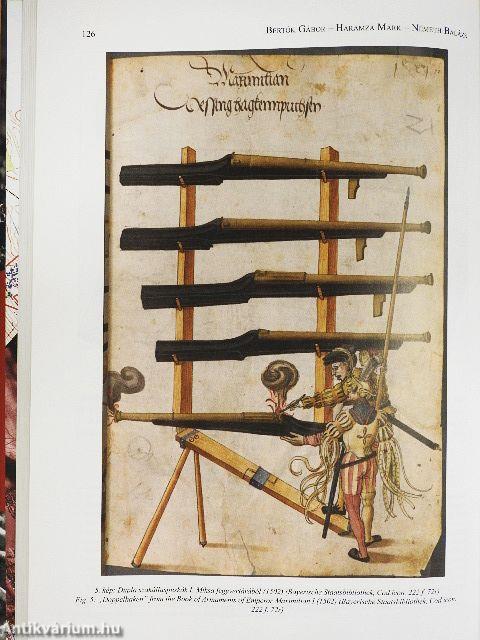 126
BERTÓK GÁBOR – HARAMZA MÁRK – NÉMETH BALÁZS
Maximilian
Messing Hagkennpuchsen
5. kép: Dupla szakállaspuskák I. Miksa fegyverlistájából (1502) (Bayerische Staatsbibliothek, Cod.icon. 222 f. 72r)
Fig. 5: „Doppelhaken” from the Book of Armaments of Emperor Maximilian I (1502) (Bayerische Staatsbibliothek, Cod.icon.
222 f. 72r)
Antikvárium.hu
http://antikvarium.hu